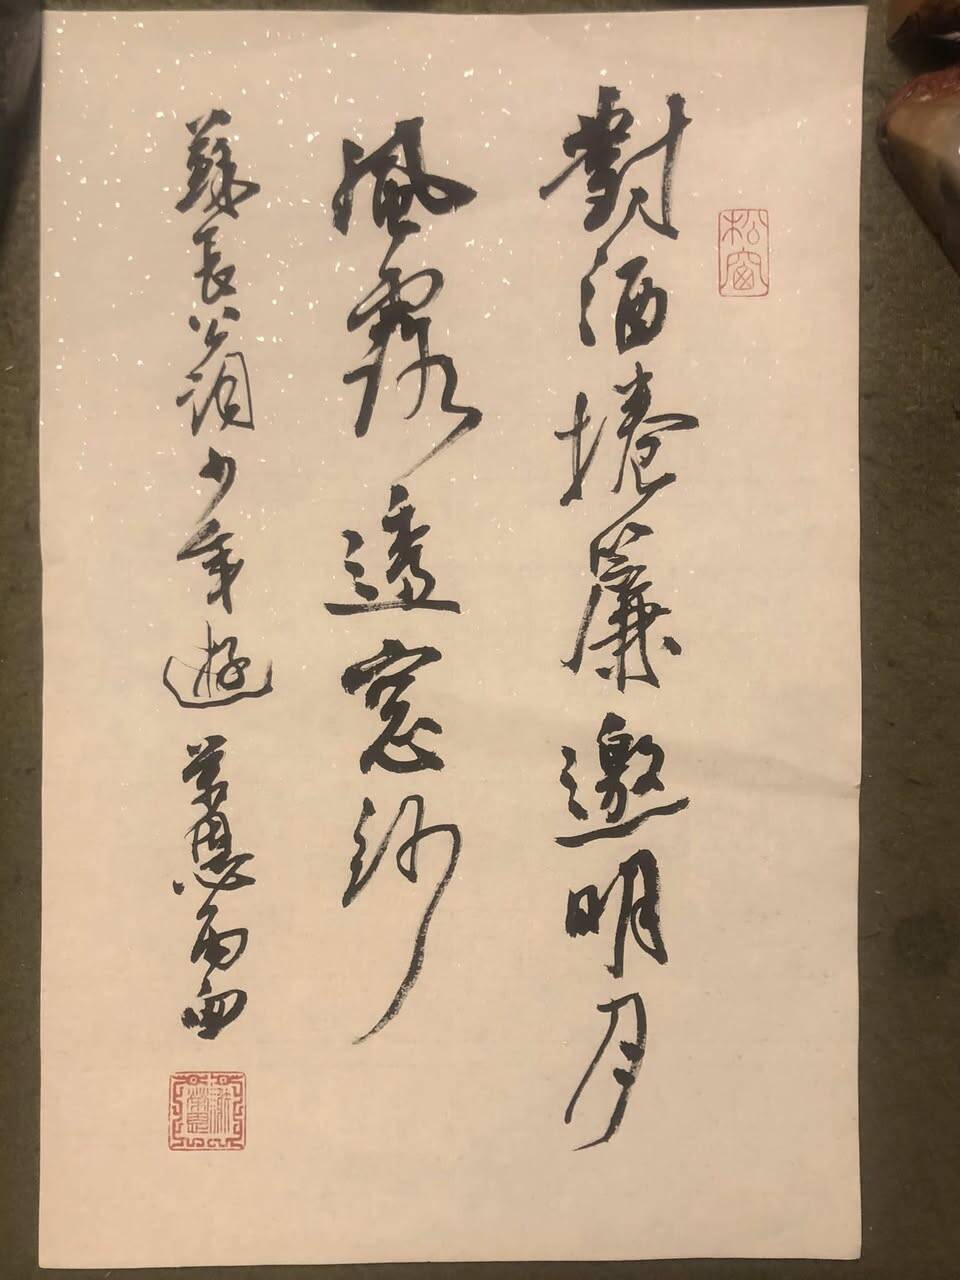 對酒捲簾邀明月
風露透窓紗
蘇長公詞少年遊 榮恩
松窗